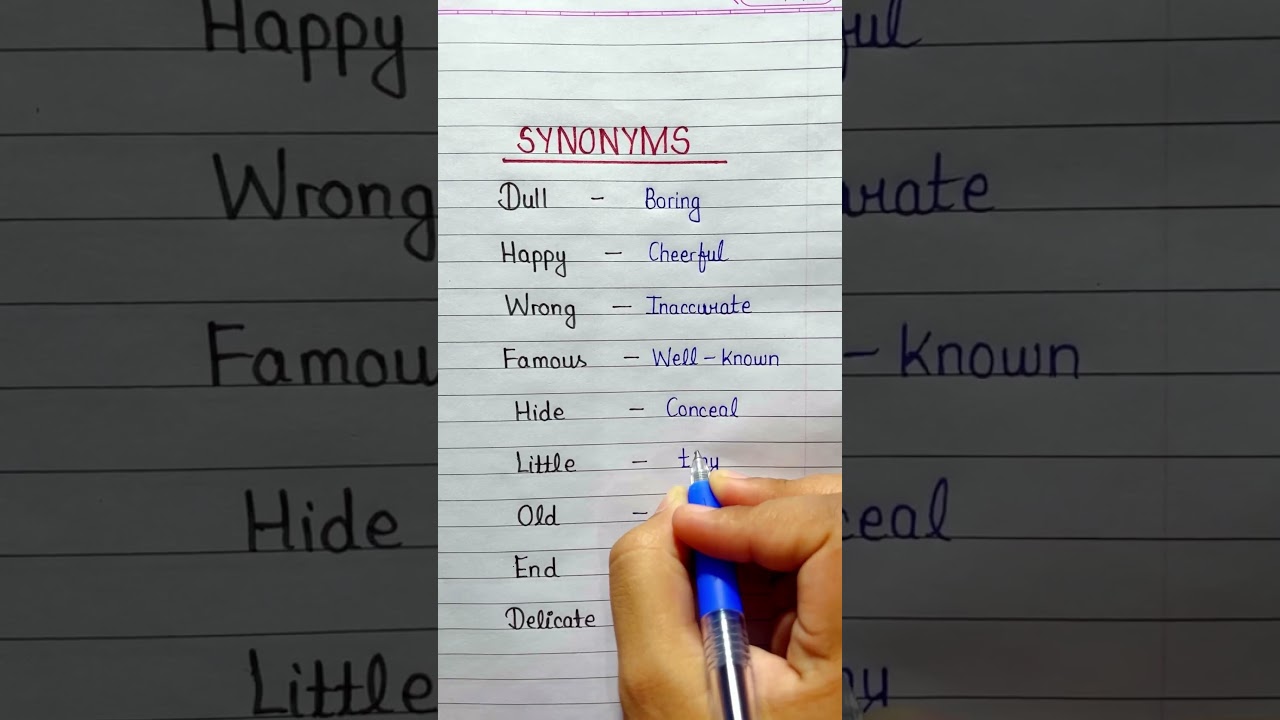 SYNONYMS
Dull - Boring
Happy - Cheerful
Wrong - Inaccurate
Famous - Well-known
Hide - Conceal
Little -
Old -
End
Delicate